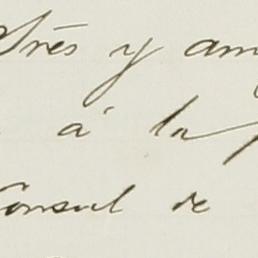 Srés y am
á la
Consul de